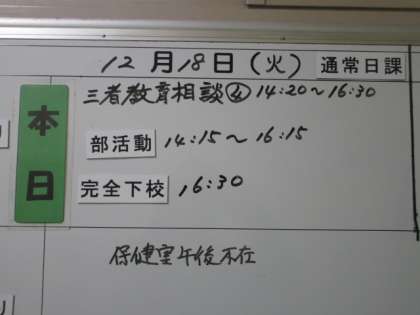 12月18日(火) 通常日課
本日
三者教育相談④ 14:20～16:30
部活動 14:15～16:15
完全下校 16:30
保健室午後不在